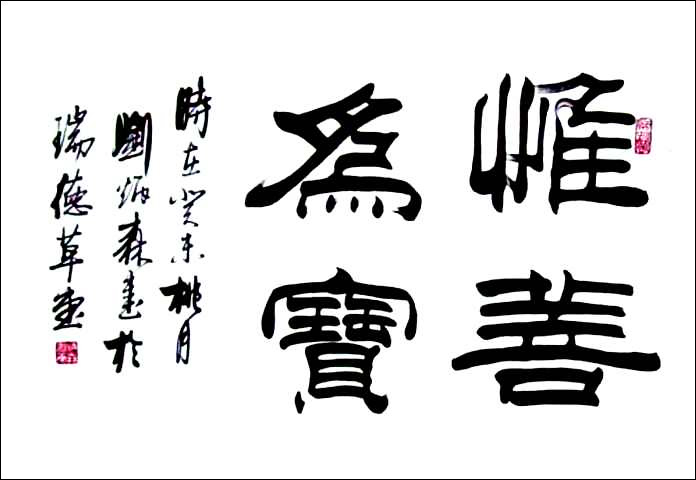 惟善
為寳
時在癸未桃月
劉炳森書於
瑞德草堂